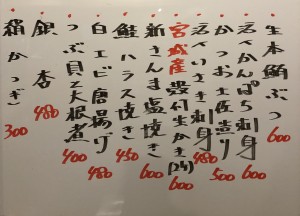 生本鮪ぶつ 600
活〆かんぱち刺身 600
かつお土佐造り 500
活〆いさき刺身 480
宮城産殻付生かき(2ヶ) 600
新さんま塩焼き 600
鮭ハラス焼き 450
白エビ唐揚げ 480
つぶ貝と大根煮 400
銀杏 480
絹かつぎ 300